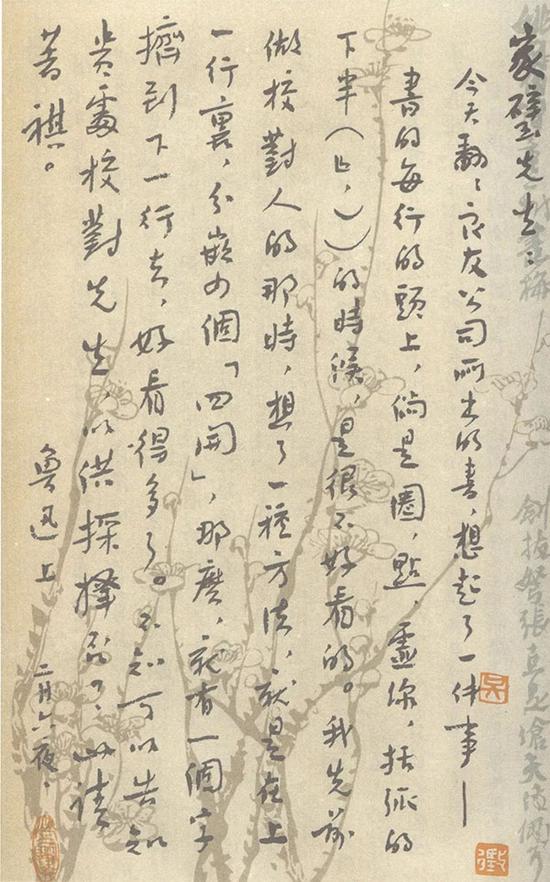 家璧先生：
今天翻翻良友公司所出的書，想起了一件事——
書的每行的頭上，倘是圈，點，虛線，括弧的
下半（」，））的時候，是很不好看的。我先前
做校對人的那時，想了一種方法，就是在上
一行裏，分嵌四個「四開」，那麽，就有一個字
擠到下一行去，好看得多了。不知可以告知
貴處校對先生，以供採擇否？此請
著祺。
魯迅上 二月六夜。